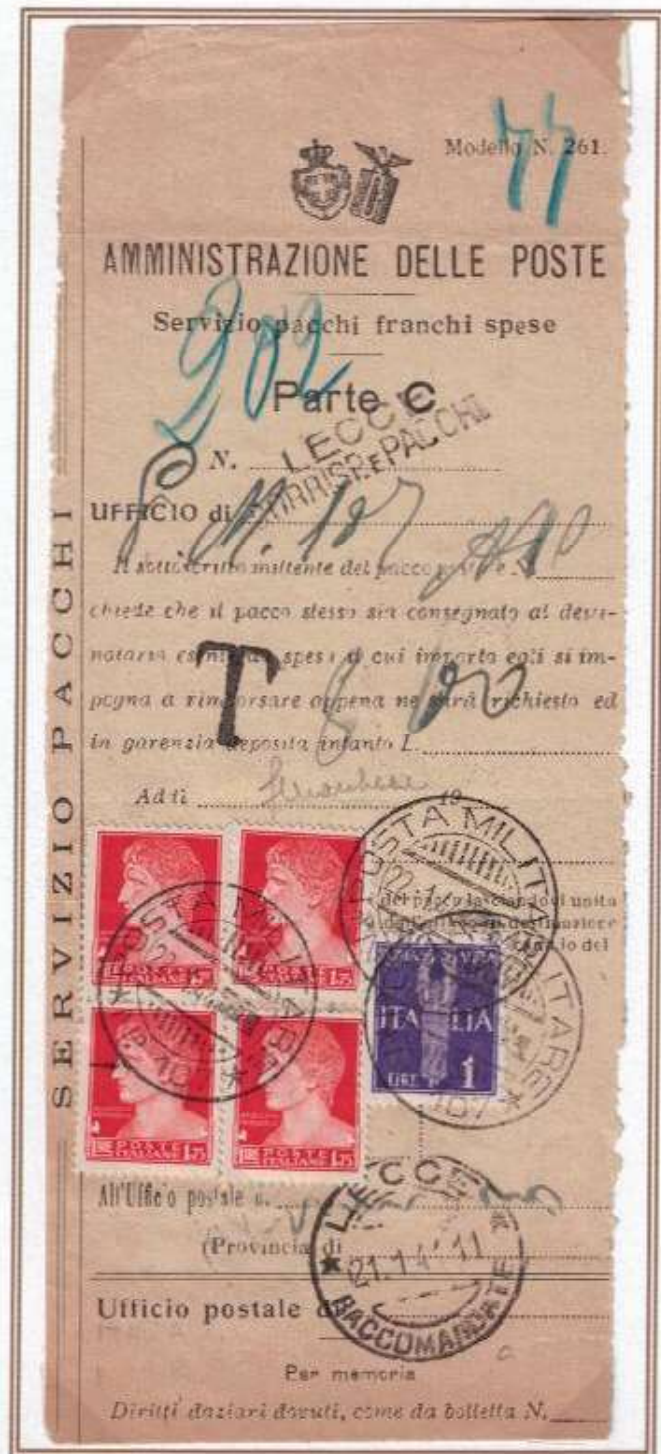 Modello N. 261.
77
AMMINISTRAZIONE DELLE POSTE
Servizio pacchi franchi spese
202
Parte C
LECCE
CORRISP. E PACCHI
N.
UFFICIO di
P M. 107
Il sottoscritto mittente del pacco postale N.
chiede che il pacco stesso sia consegnato al desti-
natario esente da spese di cui importo egli si im-
pegna a rimborsare appena ne sarà richiesto ed
in garenzia deposita intanto L.
T
Addì 19
SERVIZIO PACCHI
POSTA MILITARE
22.1.
del pacco lasciandovi unita
destinazione
POSTE ITALIANE L. 1,75
POSTE ITALIANE L. 1,75
POSTE ITALIANE L. 1,75
POSTE ITALIANE L. 1,75
ITALIA
LIRE 1
POSTA MILITARE
107
All'Uffic'o postale d
(Provincia di
LECCE
21.1.4 .11
RACCOMANDATE
Ufficio postale di
Per memoria
Diritti daziari dovuti, come da bolletta N.